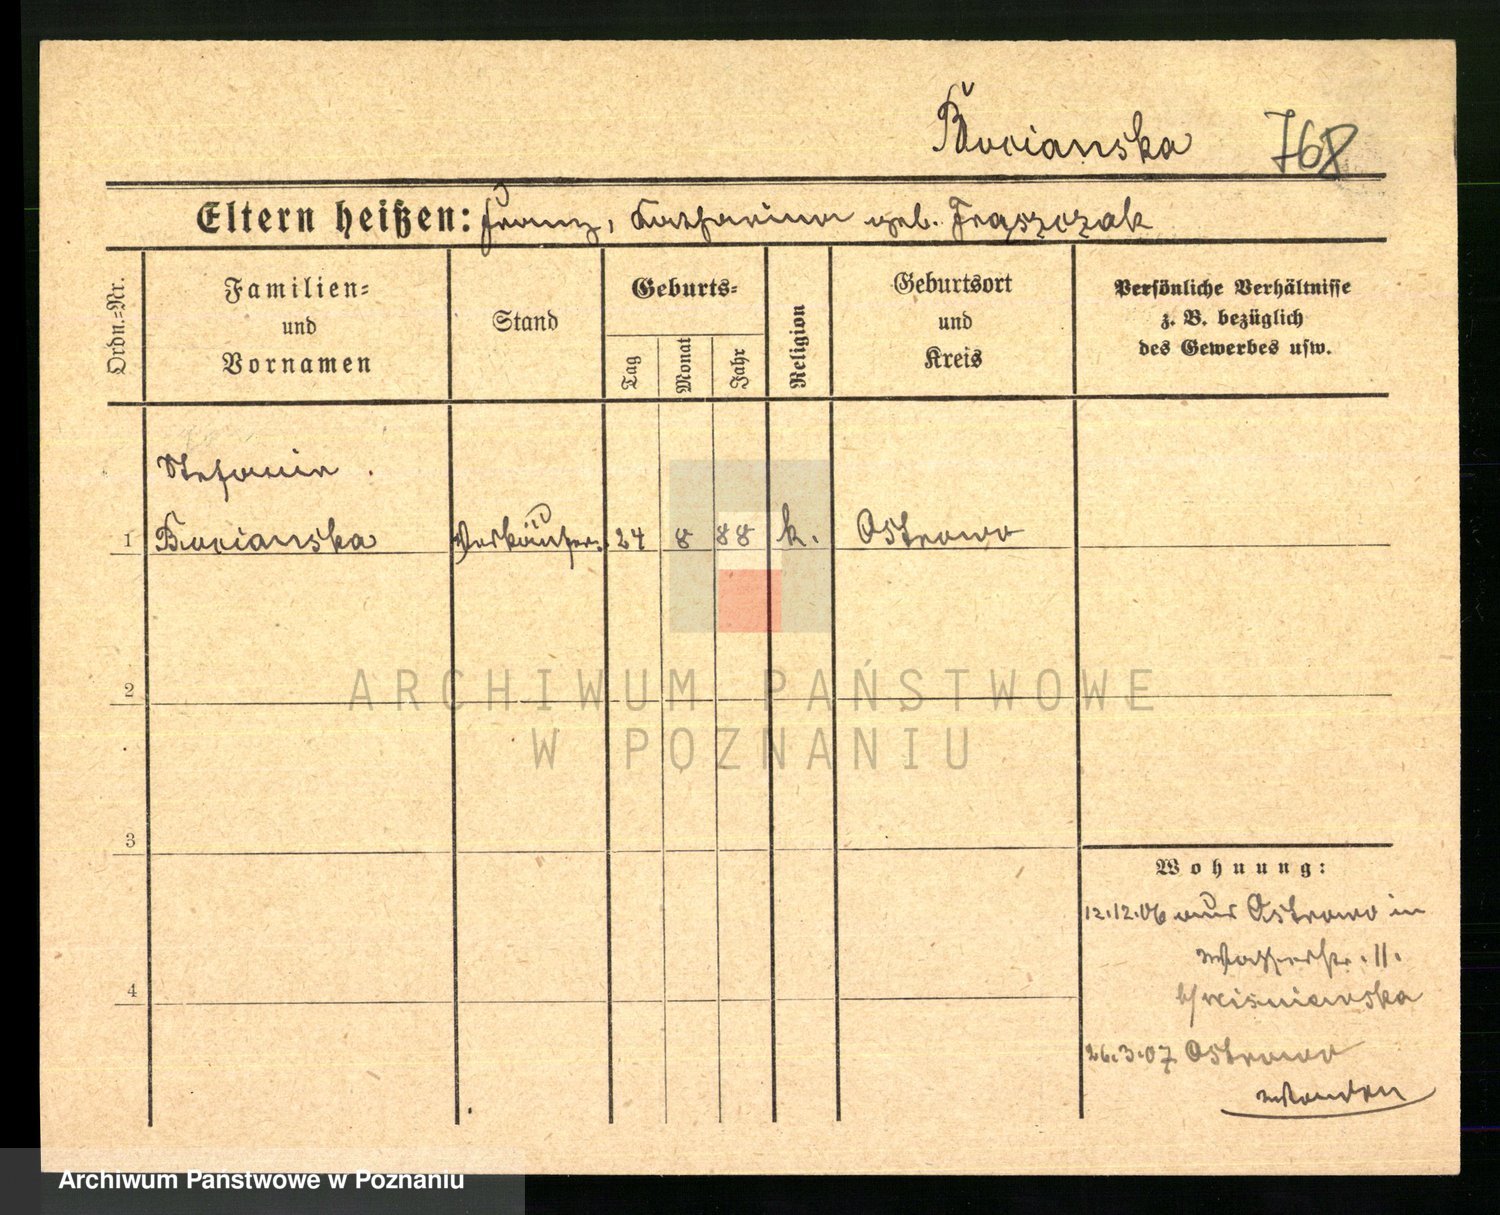 Bocianska 768
Eltern heißen: Franz, Katharina geb. Fraszczak
Ordn.-Nr.
Familien-
und
Vornamen
Stand
Geburts-
Tag
Monat
Jahr
Religion
Geburtsort
und
Kreis
Persönliche Verhältnisse
z. B. bezüglich
des Gewerbes usw.
Stefania
1 Bocianska Verkäufer. 24 8 88 k. Ostrowo
ARCHIWUM PAŃSTWOWE
W POZNANIU
2
3
Wohnung:
12.12.06 aus Ostrowo in
Wasserstr. 11.
b/ Wisniewska
4
26.3.07 Ostrowo
Wenden
Archiwum Państwowe w Poznaniu